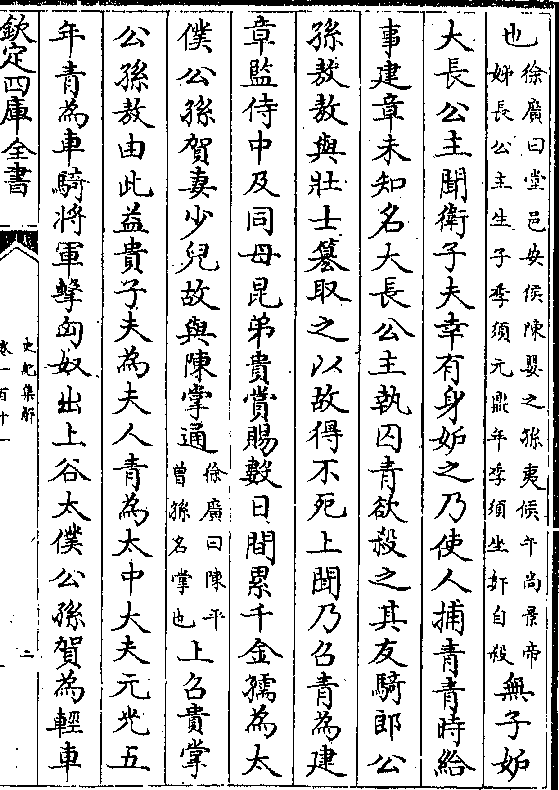 也徐廣曰堂邑安侯陳嬰之孫夷侯午尚景帝
姊長公主生子季須元鼎年季須坐奸自殺無子妒
大長公主聞衛子夫幸有身妒之乃使人捕青青時給
事建章未知名大長公主執囚青欲殺之其友騎郎公
孫敖敖與壯士簒取之以故得不死上聞乃召青為建
章監侍中及同母昆弟貴賞賜數日間累千金孺為太
僕公孫賀妻少兒故與陳掌通徐廣曰陳平
曾孫名掌也上召貴掌
公孫敖由此益貴子夫為夫人青為太中大夫元光五
年青為車騎將軍擊匈奴出上谷太僕公孫賀為輕車
欽定四庫全書
史記集解
卷一百十一
二